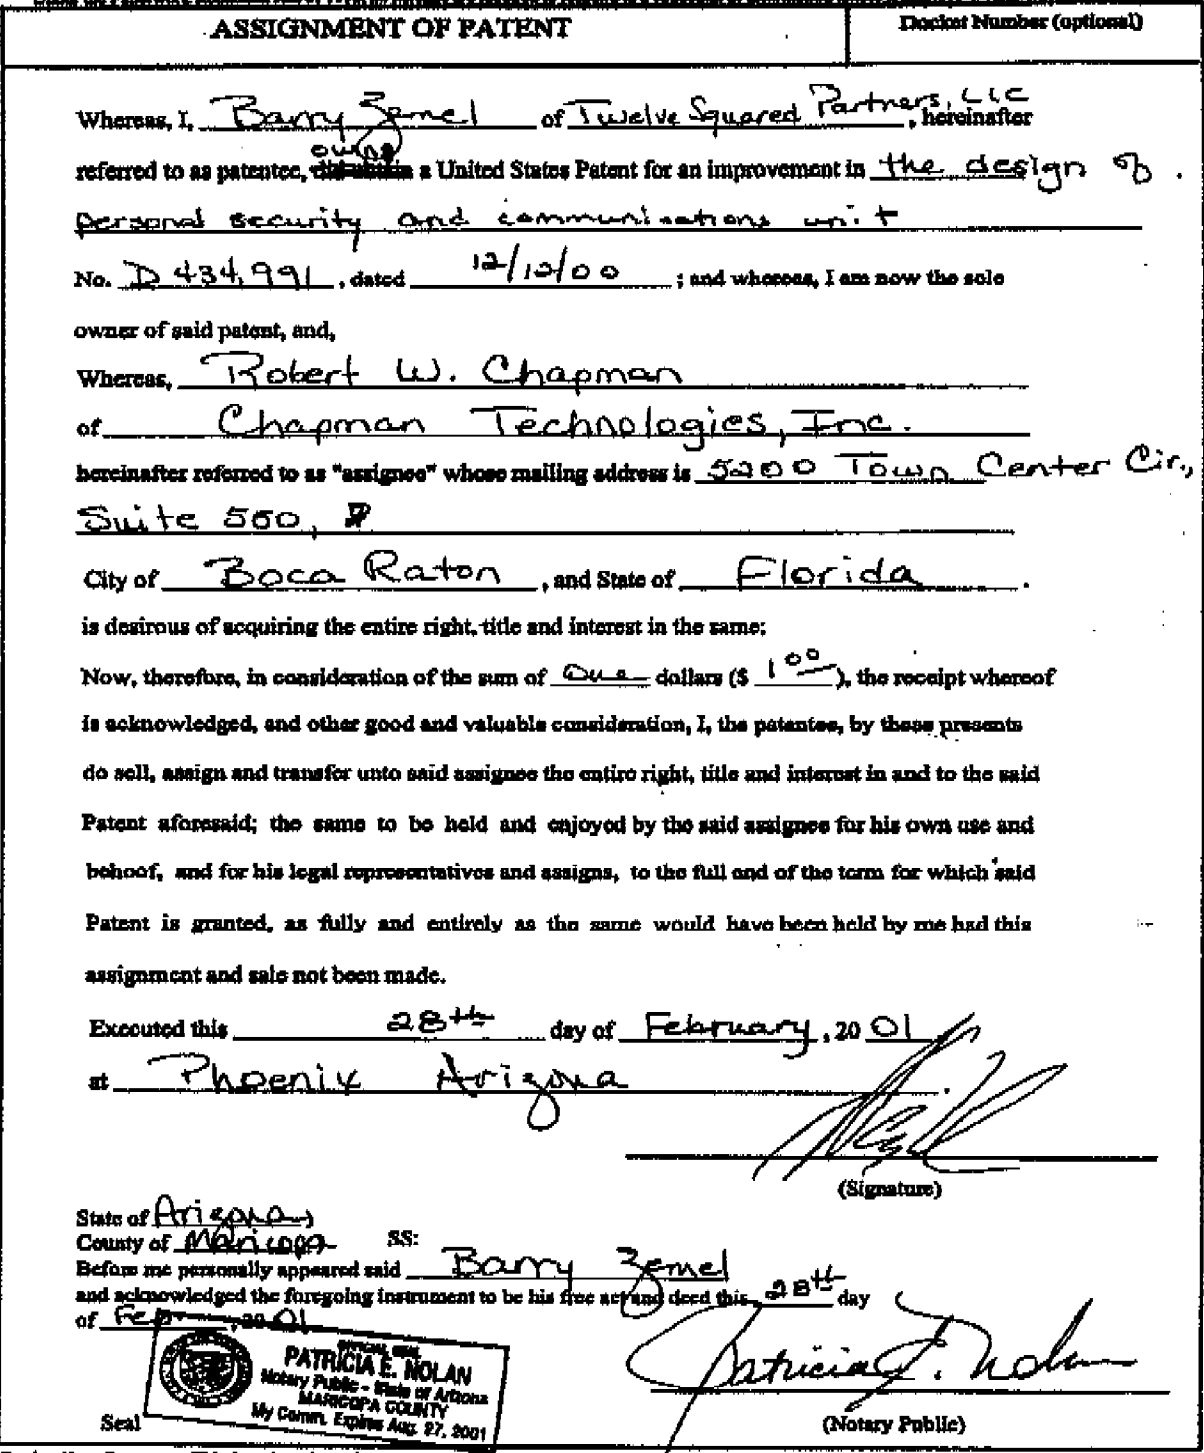 ASSIGNMENT OF PATENT
Docket Number (optional)
Whereas, I, Barry Zemel of Twelve Squared Partners, LLC, hereinafter
owns
referred to as patentee, did obtain a United States Patent for an improvement in the design of
personal security and communications unit
No. D 434,991, dated 12/12/00 ; and whereas, I am now the sole
owner of said patent, and,
Whereas, Robert W. Chapman
of Chapman Technologies, Inc.
hereinafter referred to as "assignee" whose mailing address is 5200 Town Center Cir.,
Suite 550,
City of Boca Raton, and State of Florida.
is desirous of acquiring the entire right, title and interest in the same;
Now, therefore, in consideration of the sum of One dollars ($ 1 00), the receipt whereof
is acknowledged, and other good and valuable consideration, I, the patentee, by these presents
do sell, assign and transfer unto said assignee the entire right, title and interest in and to the said
Patent aforesaid; the same to be held and enjoyed by the said assignee for his own use and
behoof, and for his legal representatives and assigns, to the full end of the term for which said
Patent is granted, as fully and entirely as the same would have been held by me had this
assignment and sale not been made.
Executed this 28th day of February, 20 01
at Phoenix Arizona.
(Signature)
State of Arizona)
County of Maricopa SS:
Before me personally appeared said Barry Zemel
and acknowledged the foregoing instrument to be his free act and deed this 28th day
of Feb, 20 01
OFFICIAL SEAL
PATRICIA E. NOLAN
Notary Public - State of Arizona
MARICOPA COUNTY
My Comm. Expires Aug. 27, 2001
Patricia E. Nolan
Seal
(Notary Public)